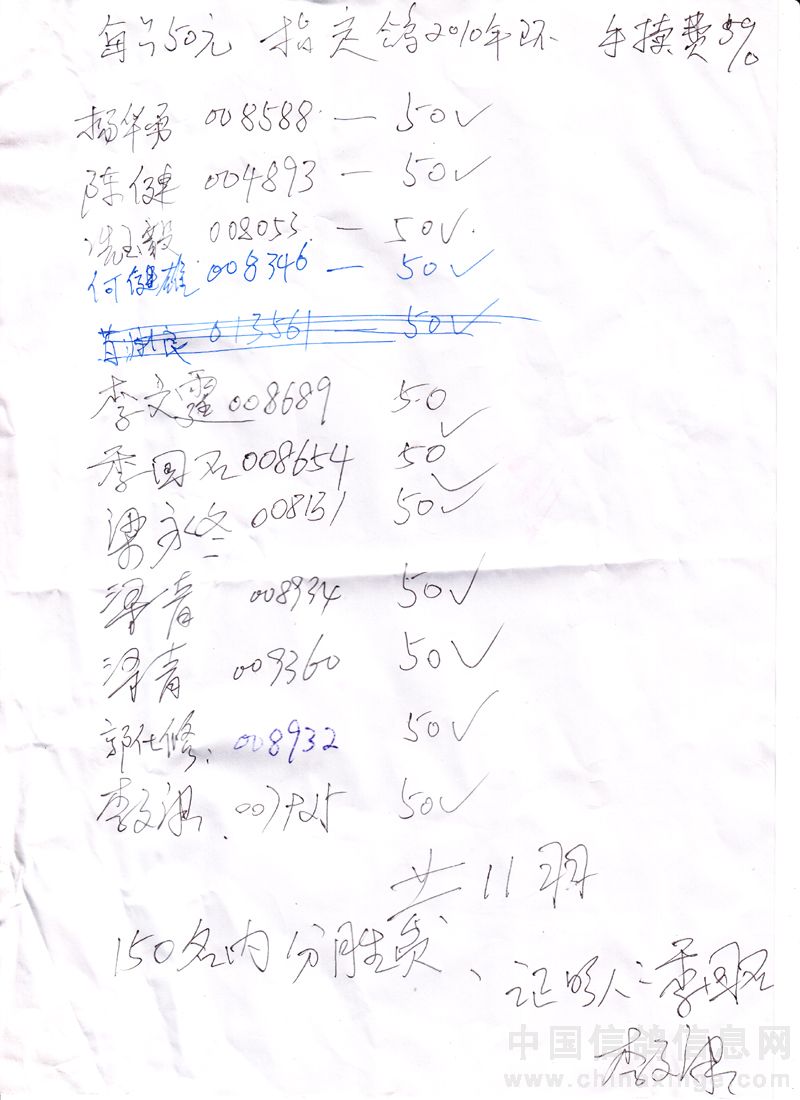 每羽50元 指定鸽2010年环 手续费5%
杨华勇 008588 — 50✓
陈健 004893 — 50✓
冼玉毅 008053 — 50✓
何健雄 008346 — 50✓
013561 — 50✓
李文霆 008689 50✓
季国石 008654 50✓
梁永冬 008131 50✓
梁青 008934 50✓
梁青 009360 50✓
郭仕修: 008932 50✓
李文湛 50✓
共11羽
150名内分胜负、证明人:季国石
李文湛
中国信鸽信息网
www.chinaxinge.com